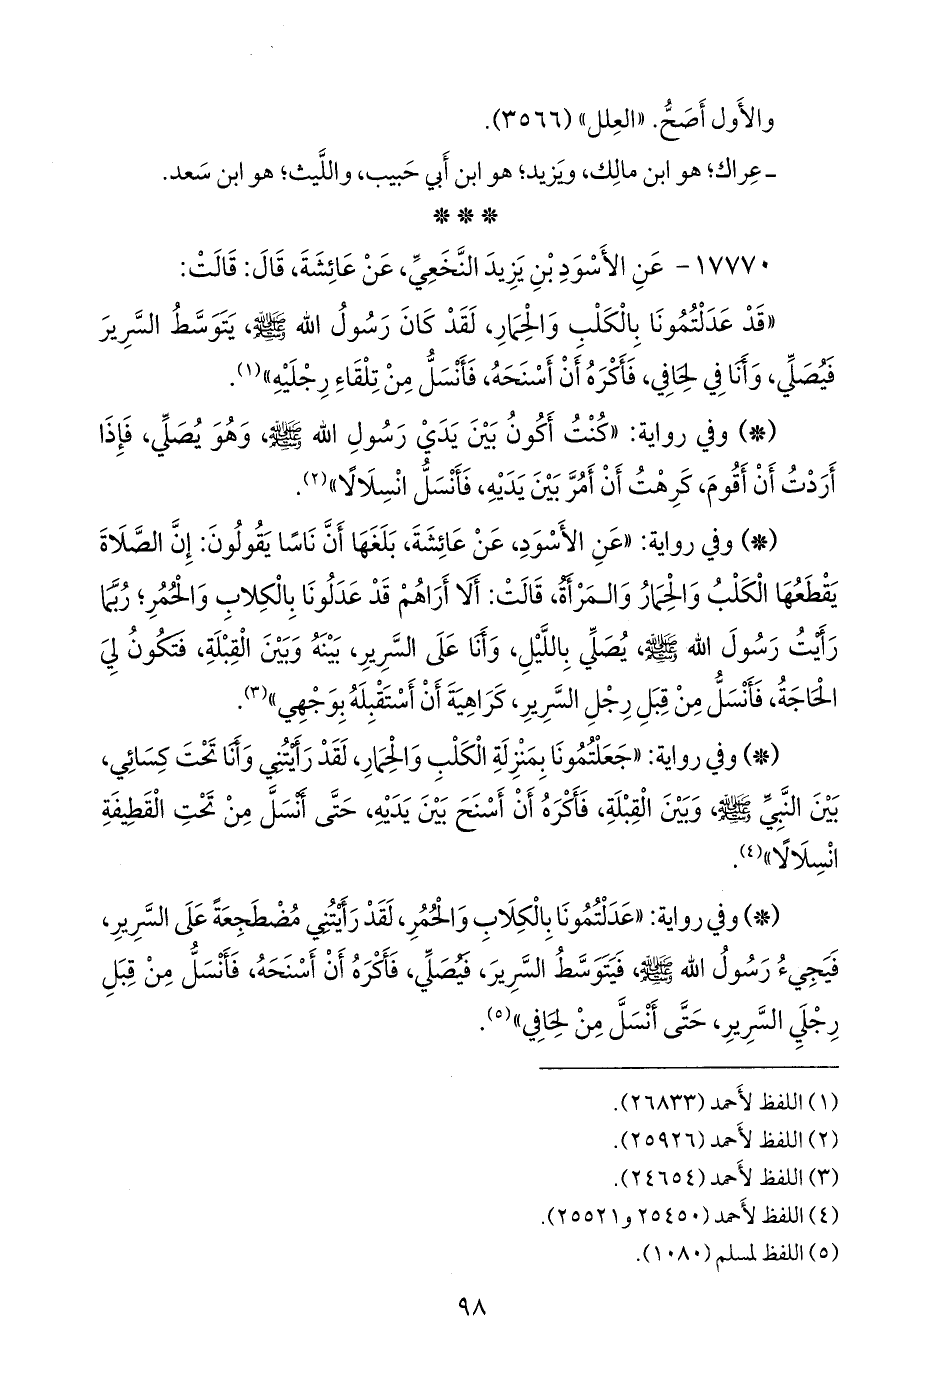 والأَول أَصَحُّ. «العِلل» (٣٥٦٦).
ـ عِراك؛ هو ابن مالِك، ويَزيد؛ هو ابن أَبي حَبيب، واللَّيث؛ هو ابن سَعد.
* * *
١٧٧٧٠ - عَنِ الأَسْوَدِ بْنِ يَزِيدَ النَّخَعِيِّ، عَنْ عَائِشَةَ، قَالَ: قَالَتْ:
«قَدْ عَدَلْتُمُونَا بِالْكَلْبِ وَالْحِمَارِ، لَقَدْ كَانَ رَسُولُ الله ﷺ، يَتَوَسَّطُ السَّرِيرَ
فَيُصَلِّي، وَأَنَا فِي لِحَافِي، فَأَكْرَهُ أَنْ أَسْنَحَهُ، فَأَنْسَلُّ مِنْ تِلْقَاءِ رِجْلَيْهِ»(١).
(*) وفي رواية: «كُنْتُ أَكُونُ بَيْنَ يَدَيْ رَسُولِ الله ﷺ، وَهُوَ يُصَلِّي، فَإِذَا
أَرَدْتُ أَنْ أَقُومَ، كَرِهْتُ أَنْ أَمُرَّ بَيْنَ يَدَيْهِ، فَأَنْسَلُّ انْسِلَالًا»(٢).
(*) وفي رواية: «عَنِ الأَسْوَدِ، عَنْ عَائِشَةَ، بَلَغَهَا أَنَّ نَاسًا يَقُولُونَ: إِنَّ الصَّلَاةَ
يَقْطَعُهَا الْكَلْبُ وَالْحِمَارُ وَالـمَرْأَةُ، قَالَتْ: أَلَا أَرَاهُمْ قَدْ عَدَلُونَا بِالْكِلابِ وَالْحُمُرِ؛ رُبَّمَا
رَأَيْتُ رَسُولَ الله ﷺ، يُصَلِّي بِاللَّيْلِ، وَأَنَا عَلَى السَّرِيرِ، بَيْنَهُ وَبَيْنَ الْقِبْلَةِ، فَتَكُونُ لِيَ
الْحَاجَةُ، فَأَنْسَلُّ مِنْ قِبَلِ رِجْلِ السَّرِيرِ، كَرَاهِيَةَ أَنْ أَسْتَقْبِلَهُ بِوَجْهِي»(٣).
(*) وفي رواية: «جَعَلْتُمُونَا بِمَنْزِلَةِ الْكَلْبِ وَالْحِمَارِ، لَقَدْ رَأَيْتُنِي وَأَنَا تَحْتَ كِسَائِي،
بَيْنَ النَّبِيِّ ﷺ، وَبَيْنَ الْقِبْلَةِ، فَأَكْرَهُ أَنْ أَسْنَحَ بَيْنَ يَدَيْهِ، حَتَّى أَنْسَلَّ مِنْ تَحْتِ الْقَطِيفَةِ
انْسِلَالًا»(٤).
(*) وفي رواية: «عَدَلْتُمُونَا بِالْكِلَابِ وَالْحُمُرِ، لَقَدْ رَأَيْتُنِي مُضْطَجِعَةً عَلَى السَّرِيرِ،
فَيَجِيءُ رَسُولُ الله ﷺ، فَيَتَوَسَّطُ السَّرِيرَ، فَيُصَلِّي، فَأَكْرَهُ أَنْ أَسْنَحَهُ، فَأَنْسَلُّ مِنْ قِبَلِ
رِجْلَيِ السَّرِيرِ، حَتَّى أَنْسَلَّ مِنْ لِحَافِي»(٥).
(١) اللفظ لأَحمد (٢٦٨٣٣).
(٢) اللفظ لأَحمد (٢٥٩٢٦).
(٣) اللفظ لأَحمد (٢٤٦٥٤).
(٤) اللفظ لأَحمد (٢٥٤٥٠ و٢٥٥٢١).
(٥) اللفظ لمسلم (١٠٨٠).
٩٨